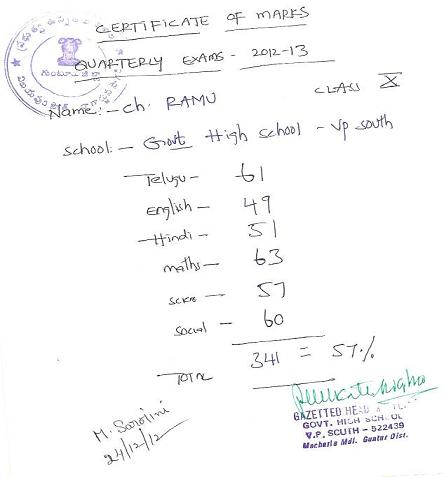 CERTIFICATE OF MARKS
QUARTERLY EXAMS - 2012-13
CLASS X
Name:- Ch. RAMU
School:- Govt High School - Vp South
Telugu - 61
English - 49
Hindi - 51
maths - 63
social - 60
57
TOTAL 341 = 57%
M. Sarojini
24/12/12
GAZETTED HEAD
GOVT. HIGH SCHOOL
V.P. SOUTH - 522439
Macherla Mdl. Guntur Dist.
గుంటూరు జిల్లా